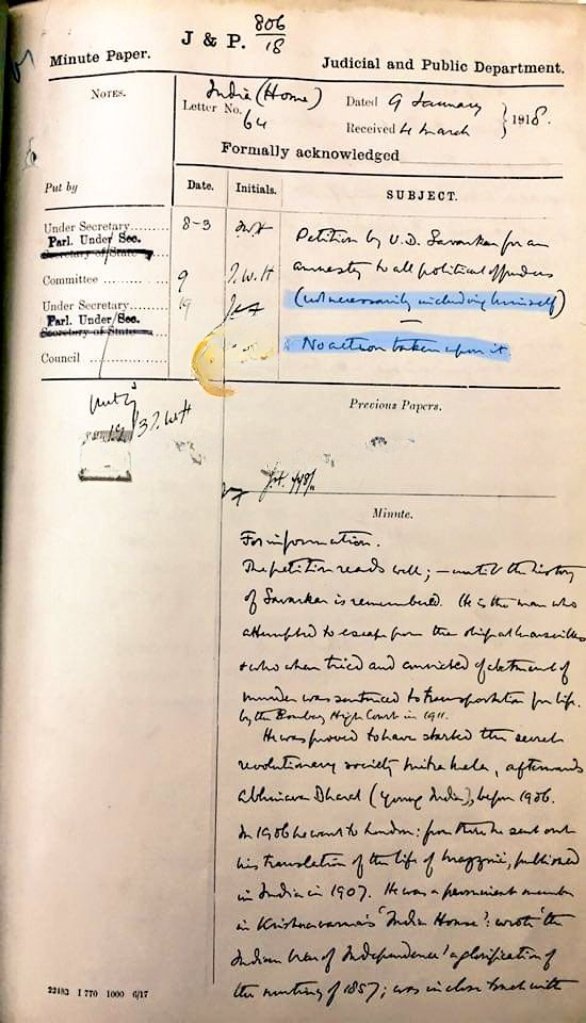 J & P. 806/18
Minute Paper.
Judicial and Public Department.
NOTES.
India (Home)
Letter No. 64
Dated 9 January
Received 4 March
} 1918.
Formally acknowledged
Put by
Date.
Initials.
SUBJECT.
Under Secretary
8-3
Parl. Under Sec.
Secretary of State
Committee
9
T.W.H
Under Secretary
19
Parl. Under Sec.
Secretary of State
Council
Petition by V.D. Savarkar for an
amnesty to all political offenders
(not necessarily including himself)
No action taken upon it.
Previous Papers.
Minute.
For information.
The petition reads well; — until the history
of Savarkar is remembered. He is the man who
attempted to escape from the ship at Marseilles
& who when tried and convicted of abetment of
murder was sentenced to transportation for life.
by the Bombay High Court in 1911.
He was proved to have started the secret
revolutionary society Mitra Mela, afterwards
Abhinava Bharat (Young India), before 1906.
In 1906 he went to London: from there he sent out
his translation of the life of Mazzini, published
in India in 1907. He was a prominent member
in Krishnavarma's 'India House': wrote 'the
Indian War of Independence' a glorification of
the mutiny of 1857; was in close touch with
22483 I 770 1000 6/17